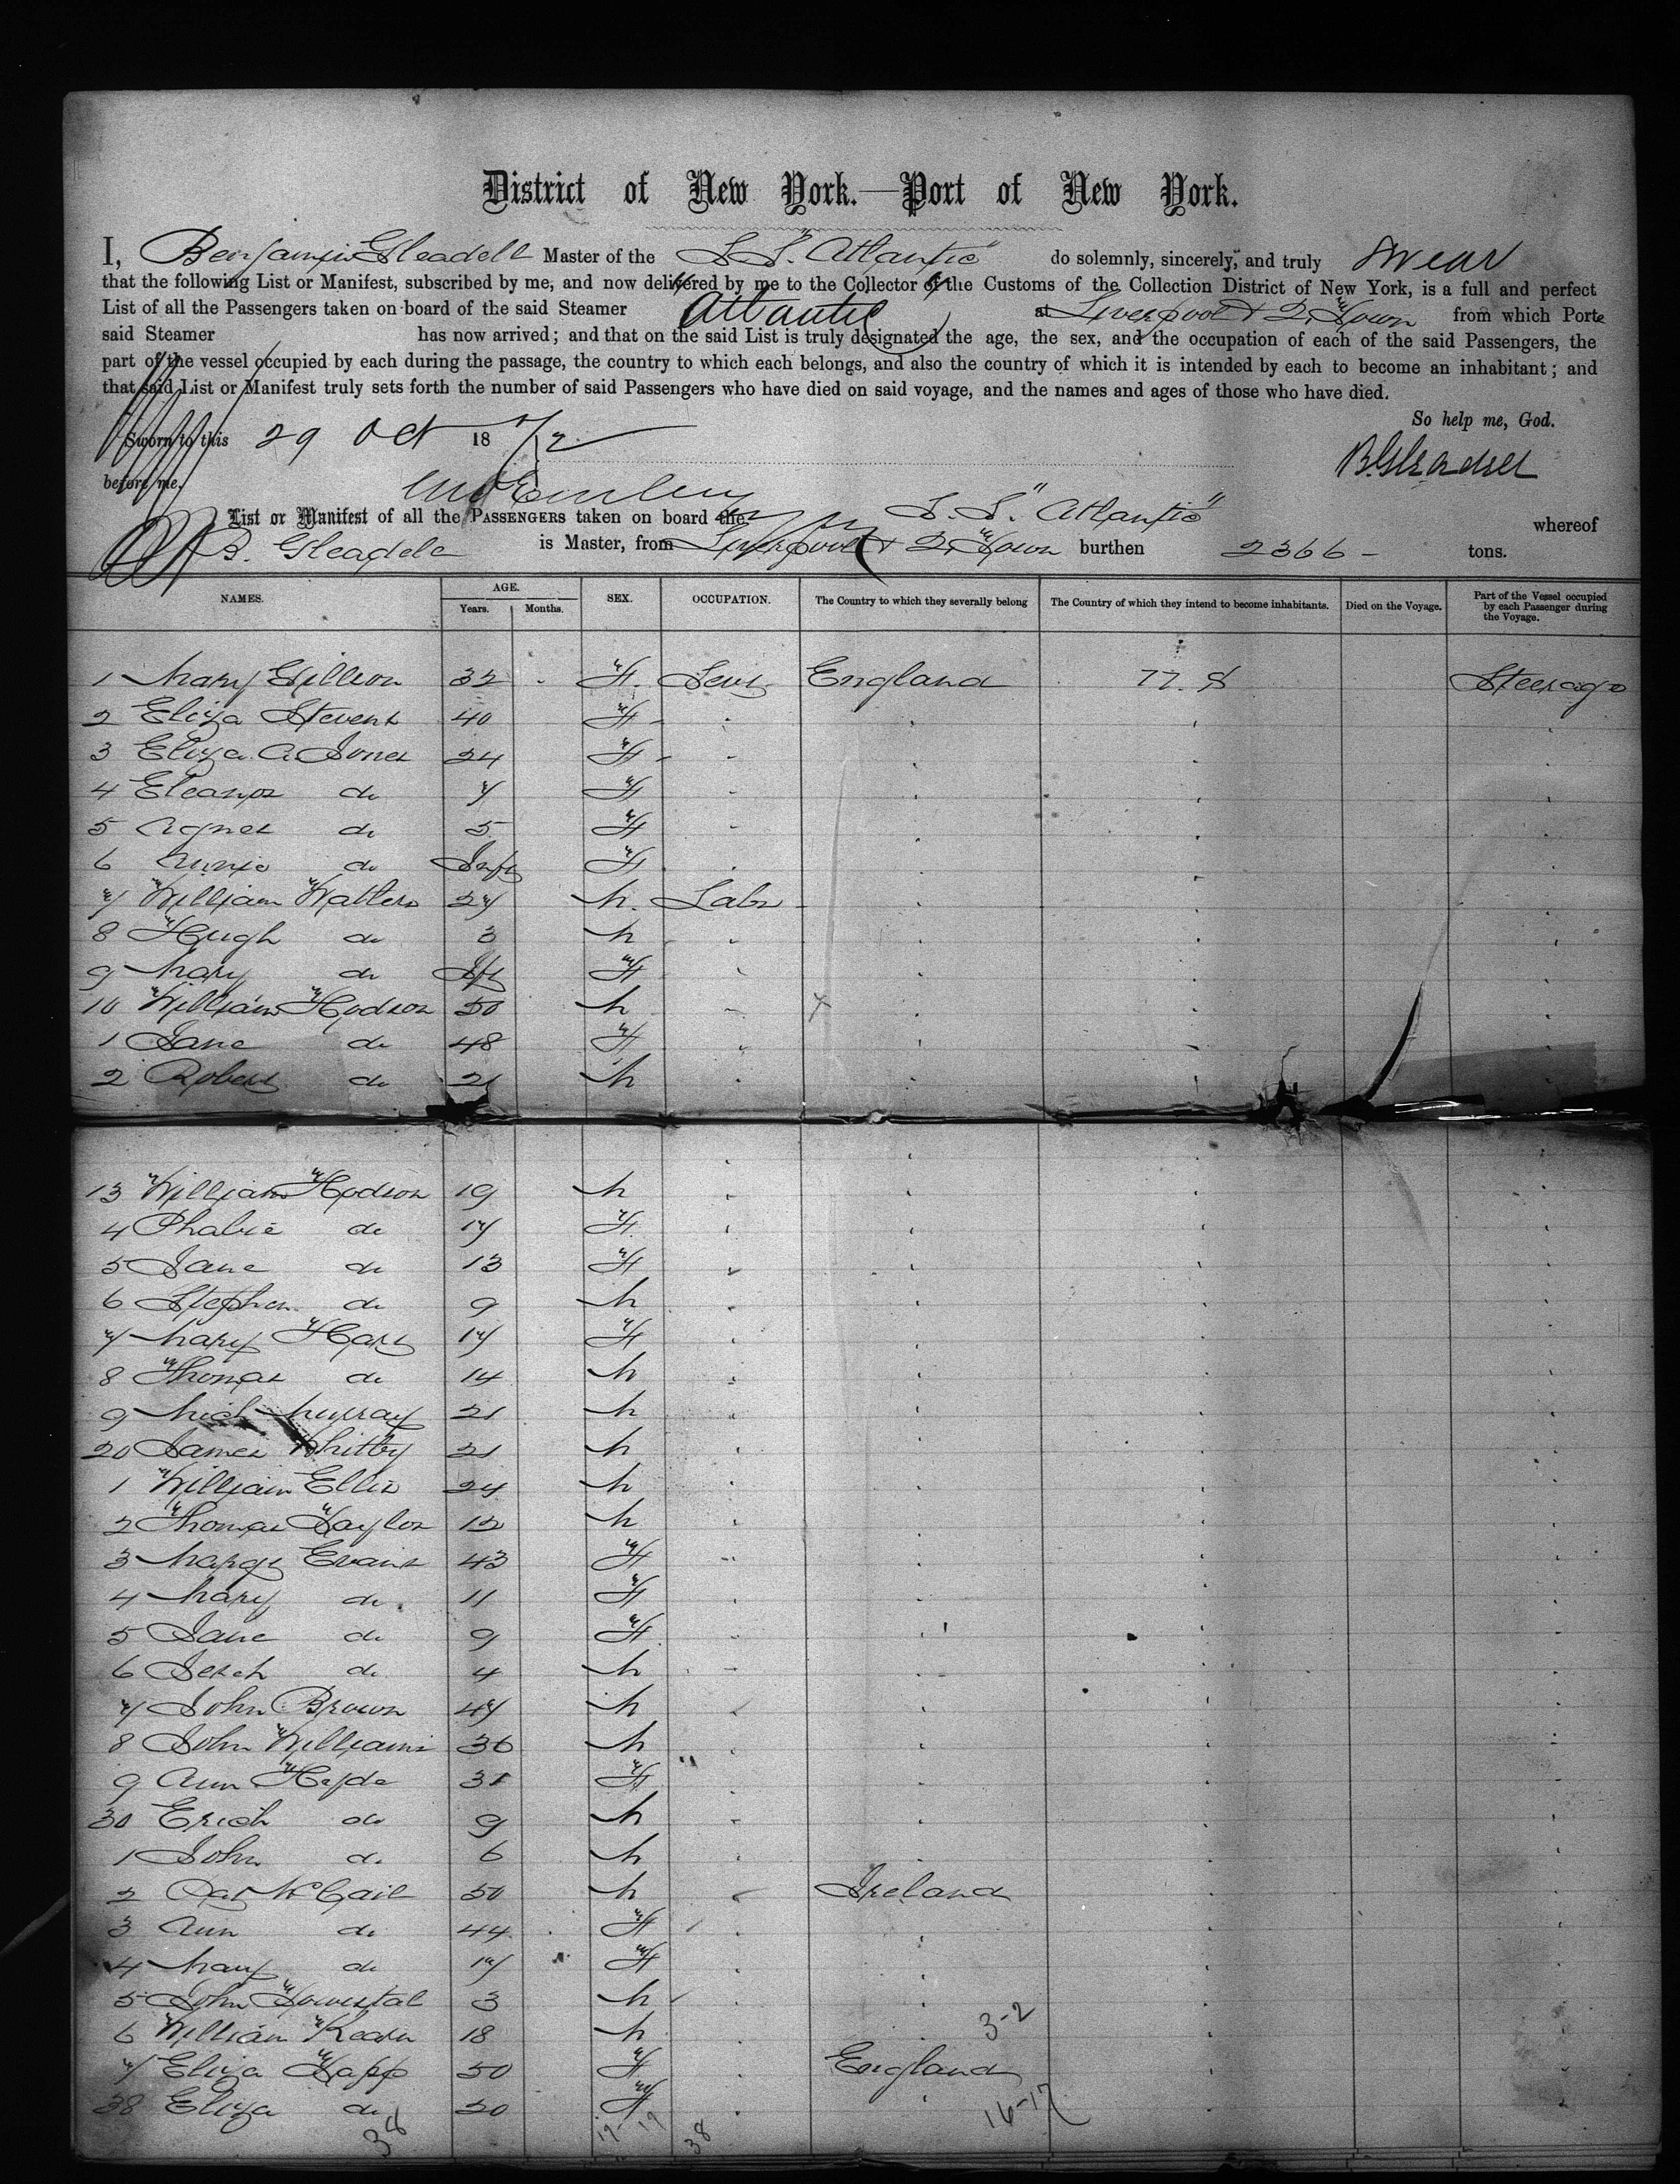 District of New York.—Port of New York.
I, Benjamin Gleadell Master of the S.S. "Atlantic" do solemnly, sincerely, and truly swear
that the following List or Manifest, subscribed by me, and now delivered by me to the Collector of the Customs of the Collection District of New York, is a full and perfect
List of all the Passengers taken on board of the said Steamer Atlantic at Liverpool & Q. Town from which Porte
said Steamer has now arrived; and that on the said List is truly designated the age, the sex, and the occupation of each of the said Passengers, the
part of the vessel occupied by each during the passage, the country to which each belongs, and also the country of which it is intended by each to become an inhabitant; and
that said List or Manifest truly sets forth the number of said Passengers who have died on said voyage, and the names and ages of those who have died.
So help me, God.
Sworn to this 29 Oct 1872
B. Gleadell
before me.
List or Manifest of all the PASSENGERS taken on board the S.S. "Atlantic" whereof
B. Gleadell is Master, from Liverpool & Q. Town burthen 2366 - tons.
NAMES. AGE. Years. Months. SEX. OCCUPATION. The Country to which they severally belong The Country of which they intend to become inhabitants. Died on the Voyage. Part of the Vessel occupied by each Passenger during the Voyage.
1 Mary Gillson 32 F. England U.S Steerage
2 Eliza Stevens 40 F
3 Eliza A. Jones 24 F
4 Eleanor do 7 F
5 Agnes do 5 F
6 Annie do Inft F
7 William Walters 27 M. Labr
8 Hugh do 3 M
9 Mary do Ift F
10 William Hodson 50 M
1 Jane do 48 F
2 Robert do 21 M
13 William Hodson 19 M
4 Phabie do 17 F
5 Jane do 13 F
6 Stephen do 9 M
7 Mary Hart 17 F
8 Thomas do 14 M
9 Mich Murray 21 M
20 James Whitby 21 M
1 William Ellis 24 M
2 Thomas Taylor 12 M
3 Margt Evans 43 F
4 Mary do 11 F
5 Jane do 9 F
6 do 4 M
7 John Brown 47 M
8 John Williams 36 M
9 Ann Hyde 31 F
30 Erich do 9 M
1 John do 6 M
2 Pat McGail 50 M Ireland
3 Ann do 44 F
4 Mary do 17 F
5 John 3 M
6 William Kearn 18 M 3-2
7 Eliza Tapp 50 F England
38 Eliza do 20 F 16-17
38 17 - 17 38